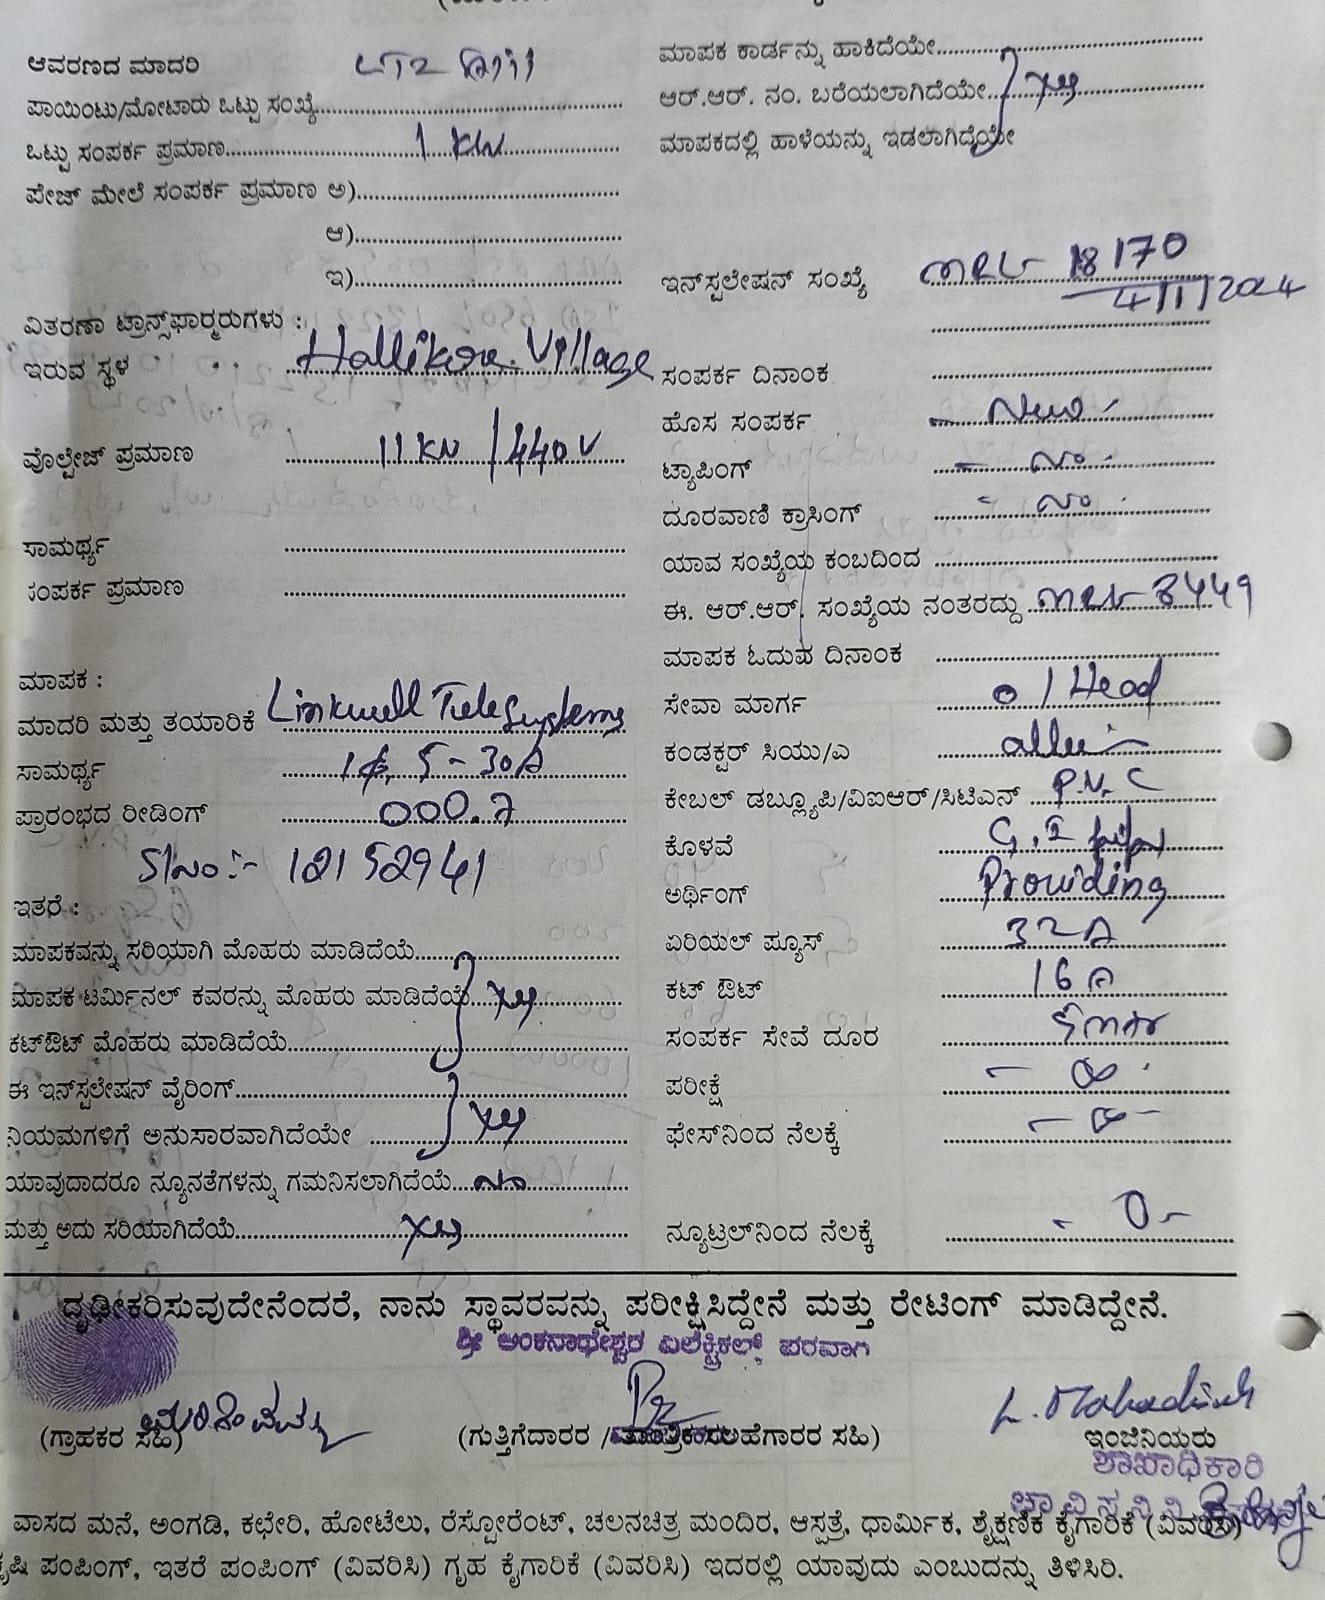 ಆವರಣದ ಮಾದರಿ LT2
ಪಾಯಿಂಟು/ಮೋಟಾರು ಒಟ್ಟು ಸಂಖ್ಯೆ
ಒಟ್ಟು ಸಂಪರ್ಕ ಪ್ರಮಾಣ 1 KW
ಪೇಜ್ ಮೇಲೆ ಸಂಪರ್ಕ ಪ್ರಮಾಣ ಅ)
ಆ)
ಇ)
ವಿತರಣಾ ಟ್ರಾನ್ಸ್‌ಫಾರ್‍ಮರುಗಳು :
ಇರುವ ಸ್ಥಳ Hallikere Village
ವೊಲ್ಟೇಜ್ ಪ್ರಮಾಣ 11KV / 440V
ಸಾಮರ್ಥ್ಯ
ಸಂಪರ್ಕ ಪ್ರಮಾಣ
ಮಾಪಕ :
ಮಾದರಿ ಮತ್ತು ತಯಾರಿಕೆ Linkwell Tele Systems
ಸಾಮರ್ಥ್ಯ 1ϕ, 5-30A
ಪ್ರಾರಂಭದ ರೀಡಿಂಗ್ 000.7
Sl No :- 12152941
ಇತರೆ :
ಮಾಪಕವನ್ನು ಸರಿಯಾಗಿ ಮೊಹರು ಮಾಡಿದೆಯೆ
ಮಾಪಕ ಟರ್ಮಿನಲ್ ಕವರನ್ನು ಮೊಹರು ಮಾಡಿದೆಯೆ Yes
ಕಟ್‌ಔಟ್ ಮೊಹರು ಮಾಡಿದೆಯೆ
ಈ ಇನ್‌ಸ್ಟಲೇಷನ್ ವೈರಿಂಗ್
ನಿಯಮಗಳಿಗೆ ಅನುಸಾರವಾಗಿದೆಯೇ Yes
ಯಾವುದಾದರೂ ನ್ಯೂನತೆಗಳನ್ನು ಗಮನಿಸಲಾಗಿದೆಯೆ No
ಮತ್ತು ಅದು ಸರಿಯಾಗಿದೆಯೆ Yes
ಮಾಪಕ ಕಾರ್ಡನ್ನು ಹಾಕಿದೆಯೇ
ಆರ್.ಆರ್. ನಂ. ಬರೆಯಲಾಗಿದೆಯೇ Yes
ಮಾಪಕದಲ್ಲಿ ಹಾಳೆಯನ್ನು ಇಡಲಾಗಿದೆಯೇ
ಇನ್‌ಸ್ಟಲೇಷನ್ ಸಂಖ್ಯೆ MRL 18170
4/1/2024
ಸಂಪರ್ಕ ದಿನಾಂಕ
ಹೊಸ ಸಂಪರ್ಕ - New -
ಟ್ಯಾಪಿಂಗ್ - No -
ದೂರವಾಣಿ ಕ್ರಾಸಿಂಗ್ - No -
ಯಾವ ಸಂಖ್ಯೆಯ ಕಂಬದಿಂದ
ಈ. ಆರ್.ಆರ್. ಸಂಖ್ಯೆಯ ನಂತರದ್ದು MRL 8449
ಮಾಪಕ ಓದುವ ದಿನಾಂಕ
ಸೇವಾ ಮಾರ್ಗ o/Head
ಕಂಡಕ್ಟರ್ ಸಿಯು/ಎ
ಕೇಬಲ್ ಡಬ್ಲ್ಯೂಪಿ/ವಿಐಆರ್/ಸಿಟಿಎಸ್ P.V.C
ಕೊಳವೆ G.I pipe
ಅರ್ಥಿಂಗ್ Prowiding
ಏರಿಯಲ್ ಪ್ಯೂಸ್ 32A
ಕಟ್ ಔಟ್ 16A
ಸಂಪರ್ಕ ಸೇವೆ ದೂರ 5mtr
ಪರೀಕ್ಷೆ - ∞ -
ಫೇಸ್‌ನಿಂದ ನೆಲಕ್ಕೆ - ∞ -
ನ್ಯೂಟ್ರಲ್‌ನಿಂದ ನೆಲಕ್ಕೆ - 0 -
ದೃಢೀಕರಿಸುವುದೇನೆಂದರೆ, ನಾನು ಸ್ಥಾವರವನ್ನು ಪರೀಕ್ಷಿಸಿದ್ದೇನೆ ಮತ್ತು ರೇಟಿಂಗ್ ಮಾಡಿದ್ದೇನೆ.
ಶ್ರೀ ಅಂಕನಾಥೇಶ್ವರ ಎಲೆಕ್ಟ್ರಿಕಲ್ಸ್ ಪರವಾಗಿ
(ಗ್ರಾಹಕರ ಸಹಿ) (ಗುತ್ತಿಗೆದಾರರ / ತಾಂತ್ರಿಕ ಸಲಹೆಗಾರರ ಸಹಿ) ಇಂಜಿನಿಯರು
ಶಾಖಾಧಿಕಾರಿ
ವಾಸದ ಮನೆ, ಅಂಗಡಿ, ಕಛೇರಿ, ಹೋಟೆಲು, ರೆಸ್ಟೋರೆಂಟ್, ಚಲನಚಿತ್ರ ಮಂದಿರ, ಆಸ್ಪತ್ರೆ, ಧಾರ್ಮಿಕ, ಶೈಕ್ಷಣಿಕ ಕೈಗಾರಿಕೆ (ವಿವರಿಸಿ)
ಕೃಷಿ ಪಂಪಿಂಗ್, ಇತರೆ ಪಂಪಿಂಗ್ (ವಿವರಿಸಿ) ಗೃಹ ಕೈಗಾರಿಕೆ (ವಿವರಿಸಿ) ಇದರಲ್ಲಿ ಯಾವುದು ಎಂಬುದನ್ನು ತಿಳಿಸಿರಿ.